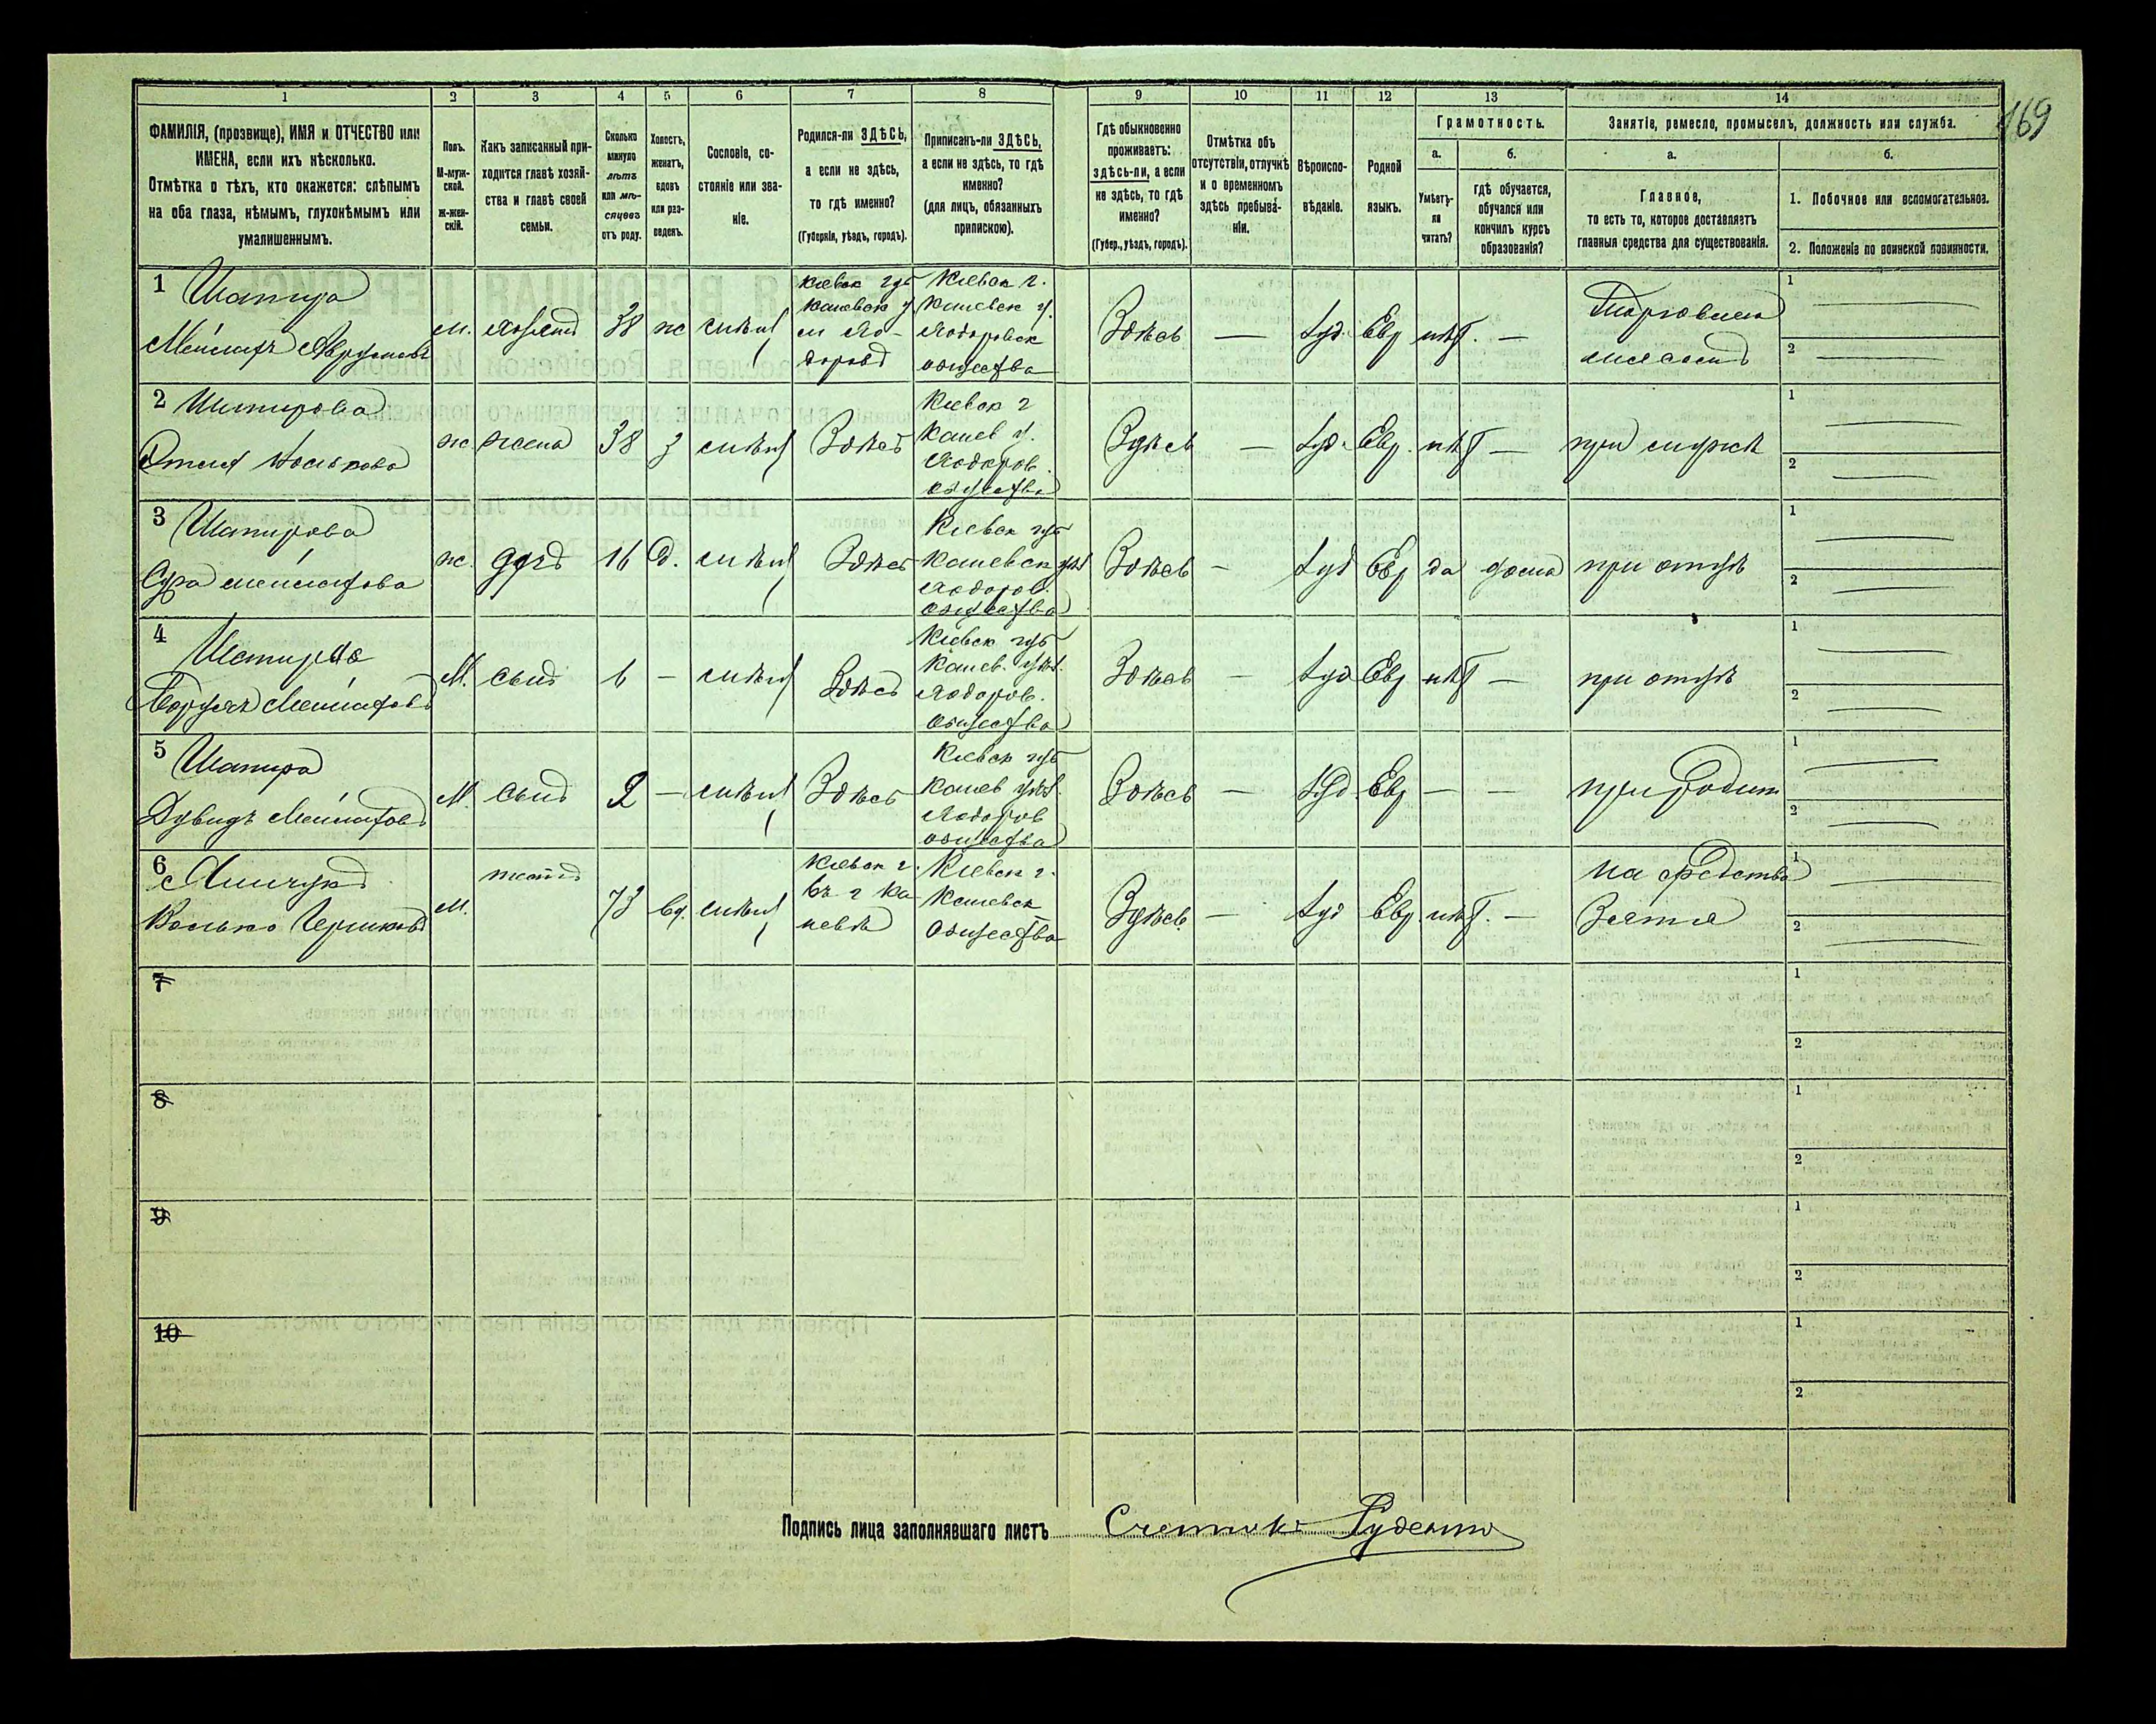 169
1 2 3 4 5 6 7 8 9 10 11 12 13 14
ФАМИЛІЯ, (прозвище), ИМЯ и ОТЧЕСТВО или
ИМЕНА, если ихъ нѣсколько.
Отмѣтка о тѣхъ, кто окажется: слѣпымъ
на оба глаза, нѣмымъ, глухонѣмымъ или
умалишеннымъ.
Полъ.
М-муж-
ской.
Ж-жен-
скій.
Какъ записанный при-
ходится главѣ хозяй-
ства и главѣ своей
семьи.
Сколько
минуло
лѣтъ
или мѣ-
сяцевъ
отъ роду.
Холостъ,
женатъ,
вдовъ
или раз-
веденъ.
Сословіе, со-
стояніе или зва-
ніе.
Родился-ли ЗДѢСЬ,
а если не здѣсь,
то гдѣ именно?
(Губернія, уѣздъ, городъ).
Приписанъ-ли ЗДѢСЬ,
а если не здѣсь, то гдѣ
именно?
(для лицъ, обязанныхъ
припискою).
Гдѣ обыкновенно
проживаетъ:
здѣсь-ли, а если
не здѣсь, то гдѣ
именно?
(Губер., уѣздъ, городъ).
Отмѣтка объ
отсутствіи, отлучкѣ
и о временномъ
здѣсь пребыва-
ніи.
Вѣроиспо-
вѣданіе.
Родной
языкъ.
Грамотность.
а.
Умѣетъ-
ли
читать?
б.
гдѣ обучается,
обучался или
кончилъ курсъ
образованія?
Занятіе, ремесло, промыселъ, должность или служба.
а.
Главное,
то есть то, которое доставляетъ
главныя средства для существованія.
б.
1. Побочное или вспомогательное.
2. Положеніе по воинской повинности.
1 Шапира
м. 38 ж Здѣсь — Іуд. Евр нѣт. —
Кіевск губ
Каневск у
Кіевск г.
Каневск у.
общества
Торговля
1
2
2 Шапирова
ж. жена 38 З Здѣсь
Кіевск г
Канев у.
общества
Здѣсь — Іуд. Евр. нѣт —
1
2
3 Шапирова
Сура
ж. 16 Д. Здѣсь
Кіевск губ
Каневск
общества
Здѣсь — Іуд Евр да дома при отцѣ
1
2
4 Шапиро
М. сынъ — Здѣсь
Кіевск губ
Канев.
общества
Здѣсь — Іуд Евр нѣт — при отцѣ
1
2
5 Шапира
Дувидъ
М. сынъ 2 — Здѣсь
Кіевск губ
Канев
общества
Здѣсь — Іуд. Евр — — при родит
1
2
6
Волько
м. 73 вд.
Кіевск г.
въ г Ка
невѣ
Кіевск г.
Каневск
общества
Здѣсь. — Іуд Евр. нѣт. —
на средства
Зятя
1
2
7
1
2
8
1
2
9
1
2
10
1
2
Подпись лица заполнявшаго листъ Счетчикъ Руденко